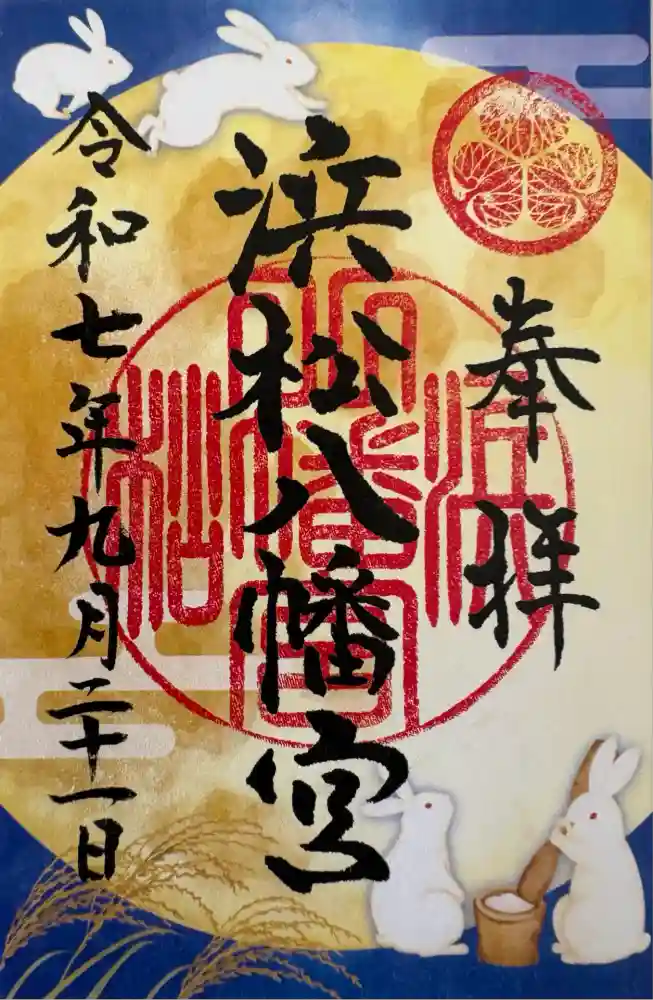 奉拝
浜松八幡宮
令和七年九月二十一日